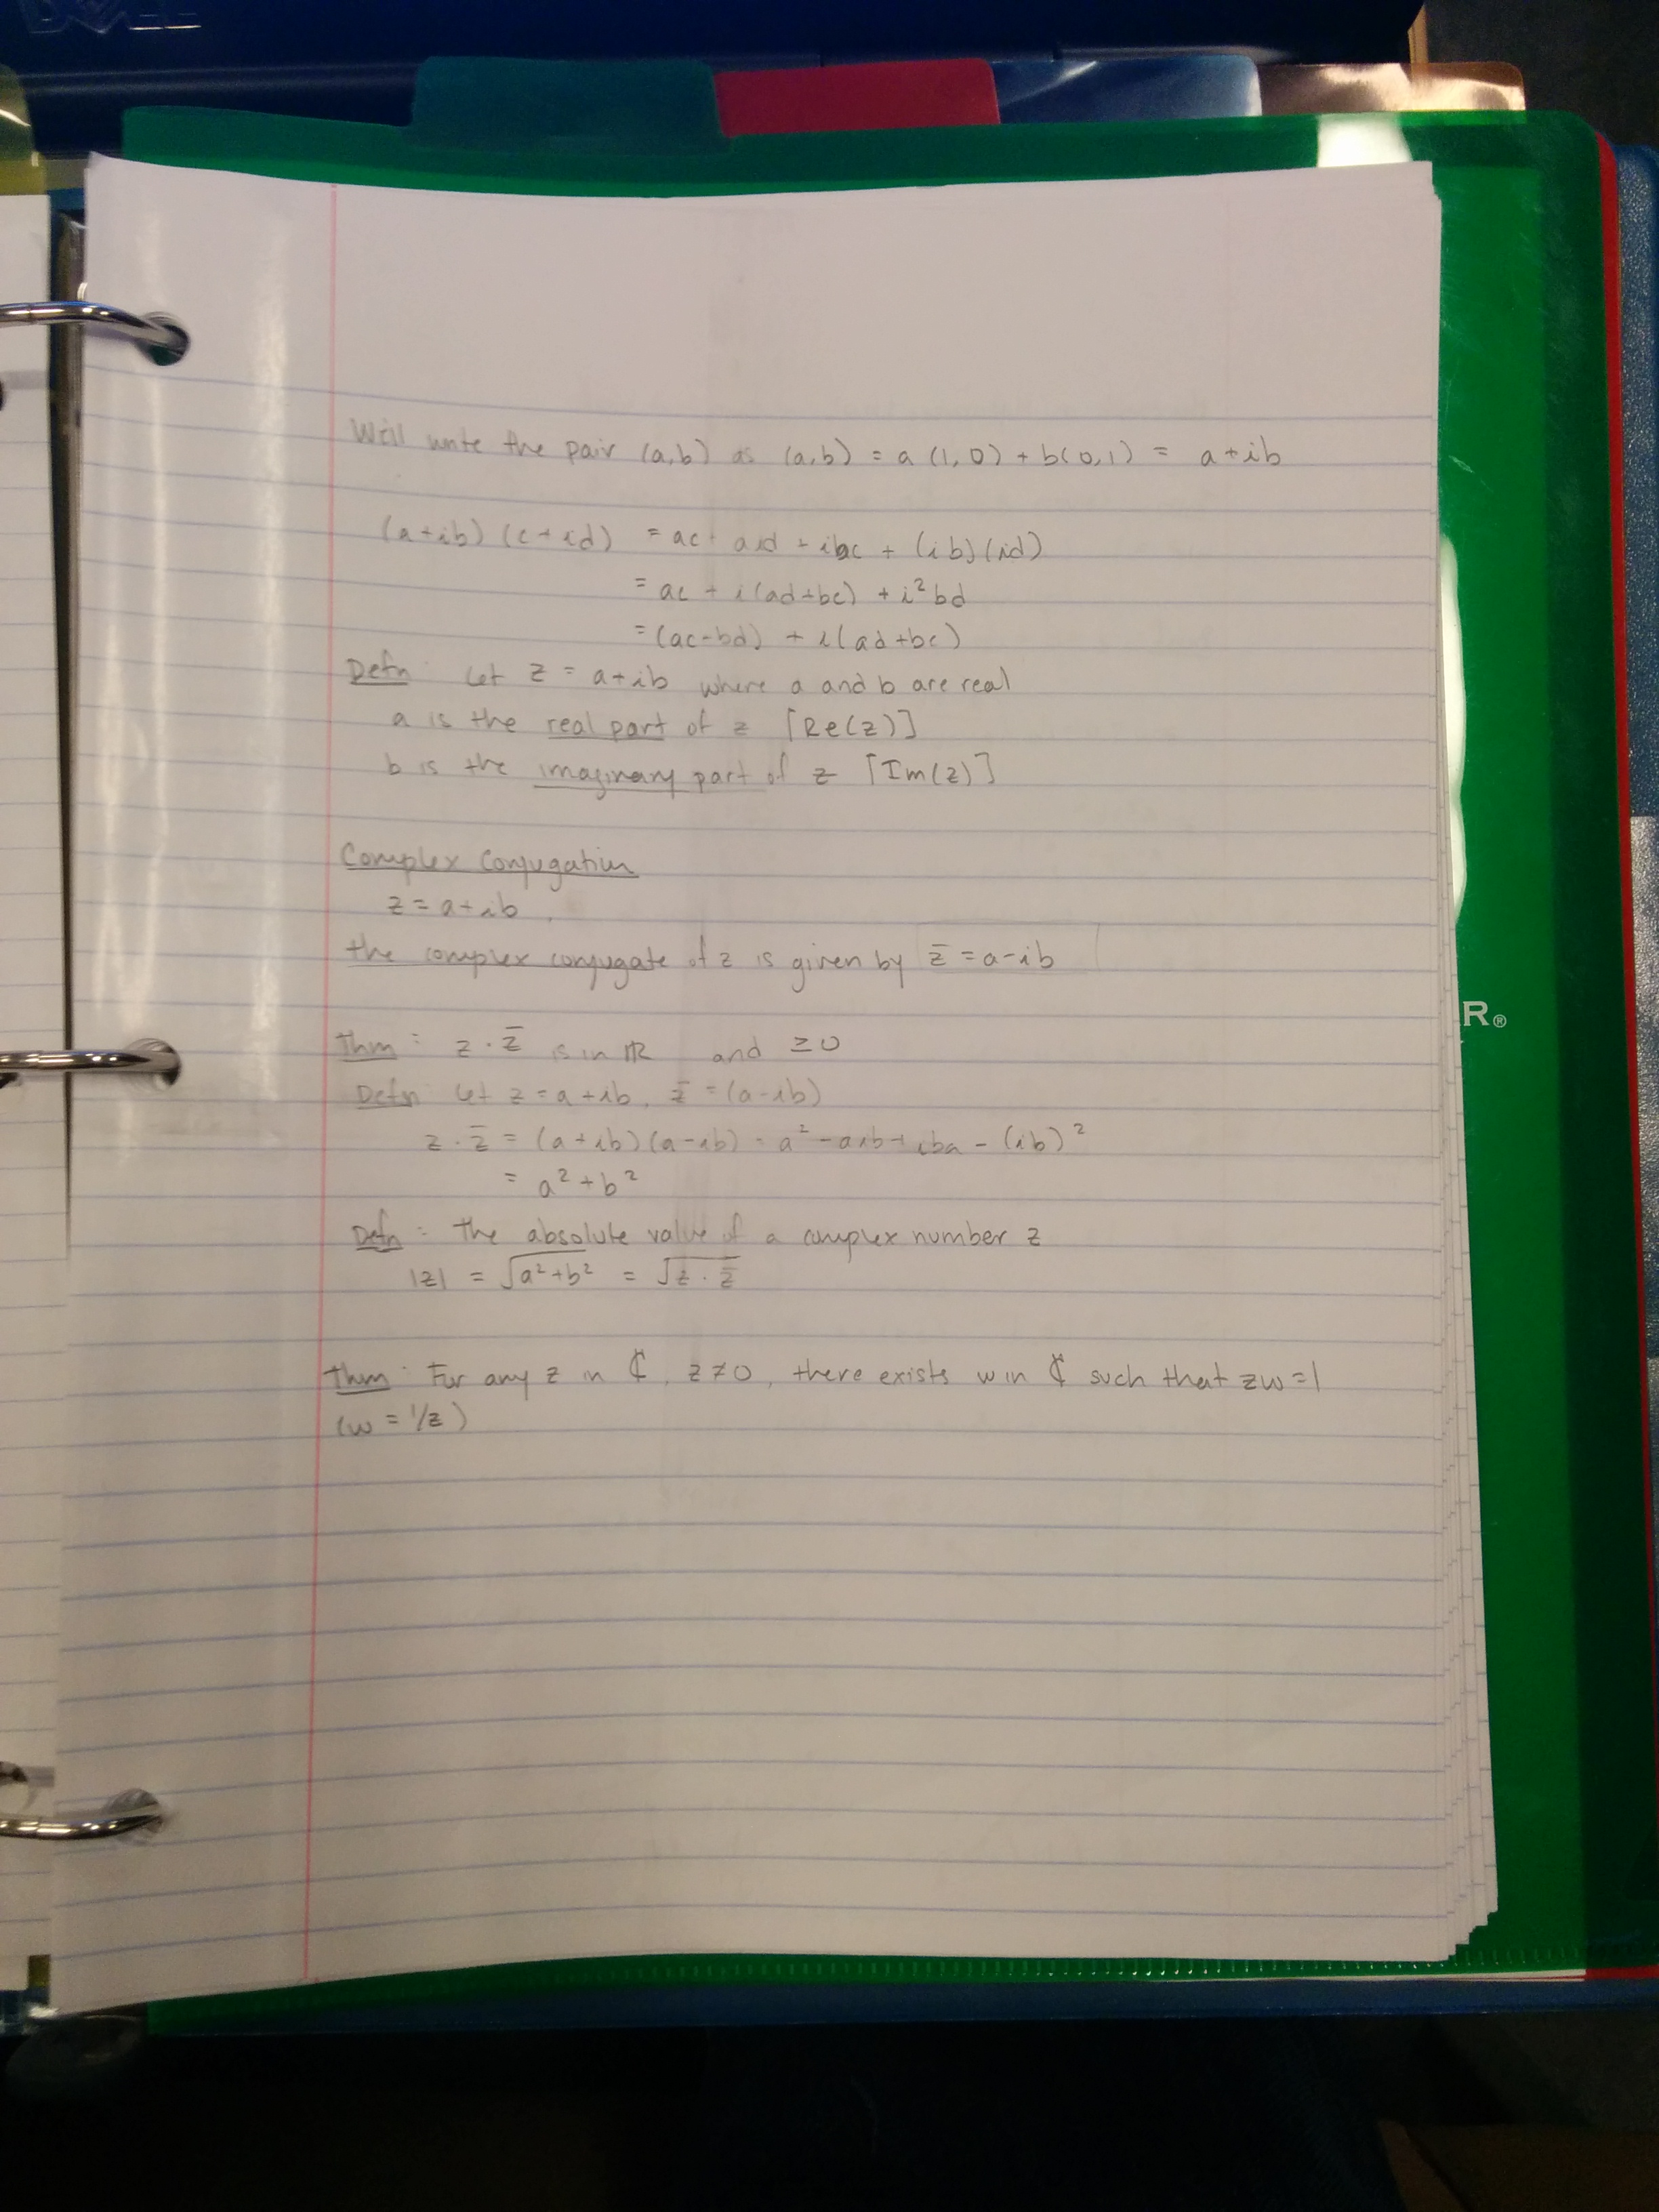 DELL
We'll write the pair (a,b) as (a,b) = a (1,0) + b(0,1) = a+ib
(a+ib) (c+id) = ac + aid + ibc + (ib)(id)
= ac + i(ad+bc) + i²bd
= (ac-bd) + i(ad+bc)
Defn: Let z = a+ib where a and b are real
a is the real part of z [Re(z)]
b is the imaginary part of z [Im(z)]
Complex Conjugation
z = a+ib,
the complex conjugate of z is given by z̄ = a-ib
Thm: z · z̄ is in ℝ and ≥0
Defn: Let z = a+ib, z̄ = (a-ib)
z · z̄ = (a+ib)(a-ib) = a² - aib + iba - (ib)²
= a² + b²
Defn: The absolute value of a complex number z
|z| = √a²+b² = √z · z̄
Thm: For any z in ℂ, z≠0, there exists w in ℂ such that zw=1
(w = 1/z)
R®